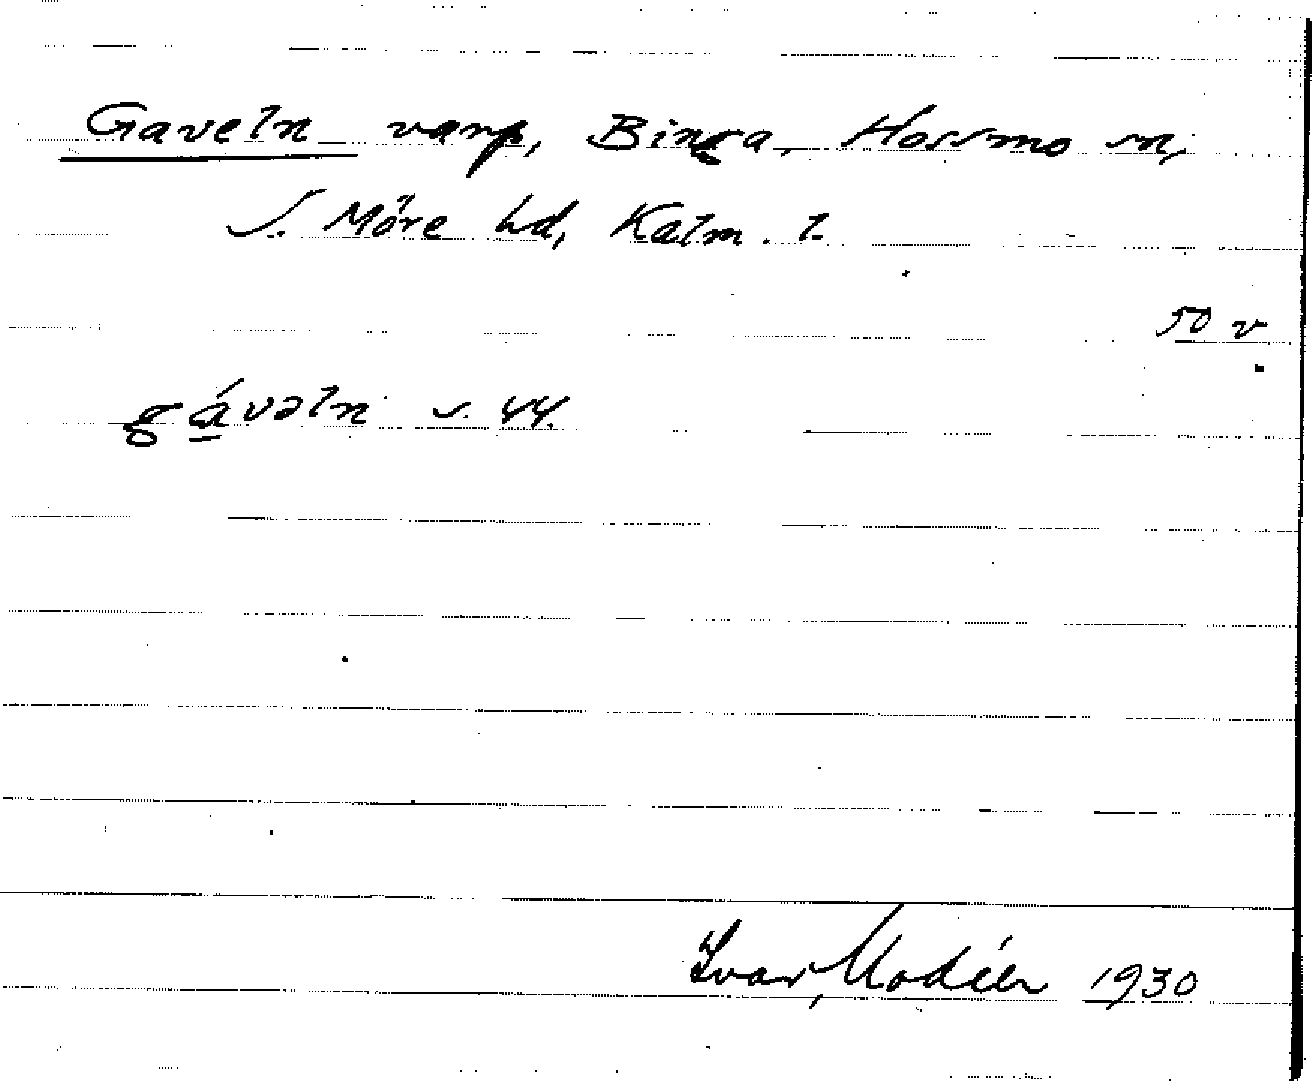 Gaveln varp, Binga, Hossmo sn,
S. Möre hd, Kalm. l.
50 v
gávəln s. 44.
Ivar Modéer 1930